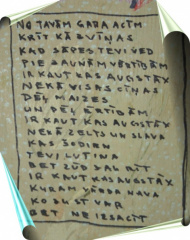 NO TAVĀM GARA ACĪM
KRĪT KĀ ZVIŅAS
KAD SĀPES TEVI VED
PIE JAUNĀM VĒSTĪDĀM
IR KAUT KAS AUGSTĀX
NEKĀ VISAS CĪŅAS
DĒĻ MAIZES
UN DĒĻ ĒRTĪDĀM
IR KAUT KAS AUGSTĀX
NEKĀ ZELTS UN SLAVA
KAS ŠODIEN
TEVI LUTINA
BET ZŪD JAU RĪT
IR KAUT KAS AUGSTĀX
KURAM VĀRDA NAVA
KO JUST VAR
BET NE IZSACĪT